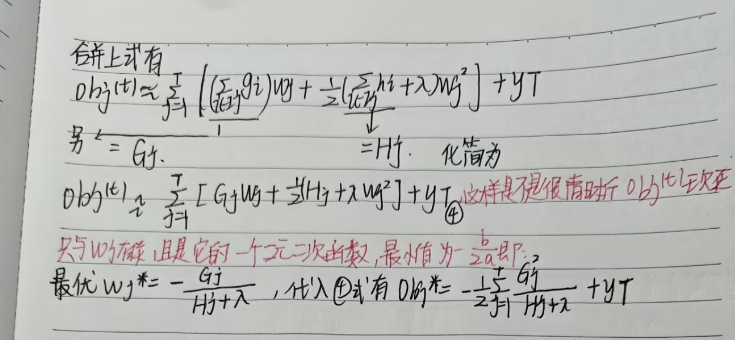 合并上式有
Obj^(t) ≈ Σ_{j=1}^{T} [(Σ_{i∈Ij} gi) wj + 1/2 (Σ_{i∈Ij} hi + λ) wj²] + γT
另 = Gj. = Hj. 化简为
Obj^(t) ≈ Σ_{j=1}^{T} [Gj wj + 1/2 (Hj + λ wj²] + γT ④ 这样是不是很清晰 Obj^(t)
只与 wj 有 且是它的一个 元二次函数,最小值为 -b/2a 即:
最优 wj* = - Gj/(Hj+λ) ,代入④式有 Obj* = -1/2 Σ_{j=1}^{T} Gj²/(Hj+λ) + γT